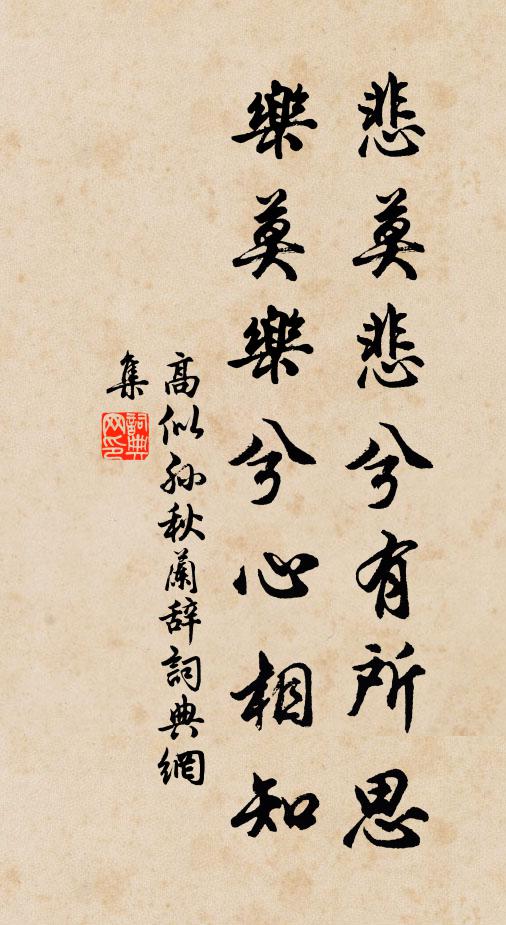 悲莫悲兮有所思
樂莫樂兮心相知
高似孙秋蘭辞詞典網
集
詞典网印